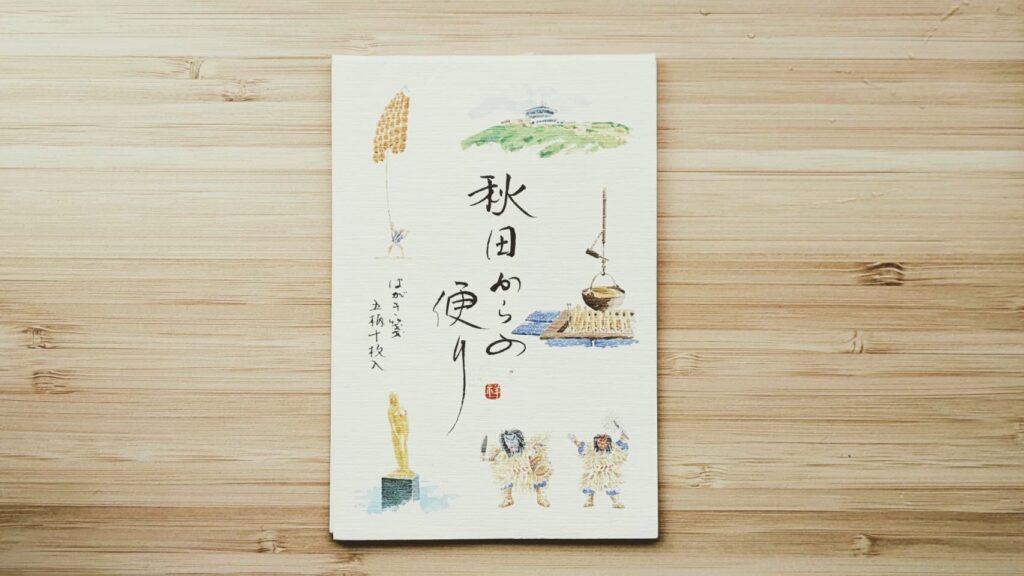 秋田からの
便り
はがき箋
五柄十枚入